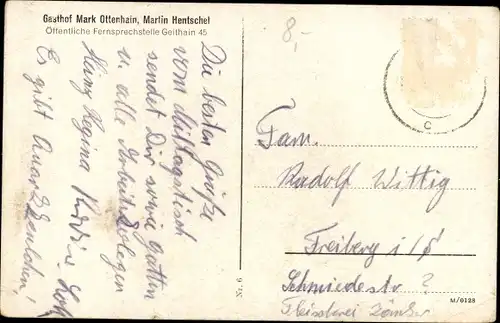 Gasthof Mark Ottenhain, Martin Hentschel
Öffentliche Fernsprechstelle Geithain 45
8,-
Die besten Grüße
vom Mittagstisch
sendet Dir sowie Gatten
u. alle
Heinz Regina
Es gibt
Fam.
Rudolf Wittig
Freiberg i/S
Schmiedestr ?
Fleischerei
C
Nr. 6
M/0128